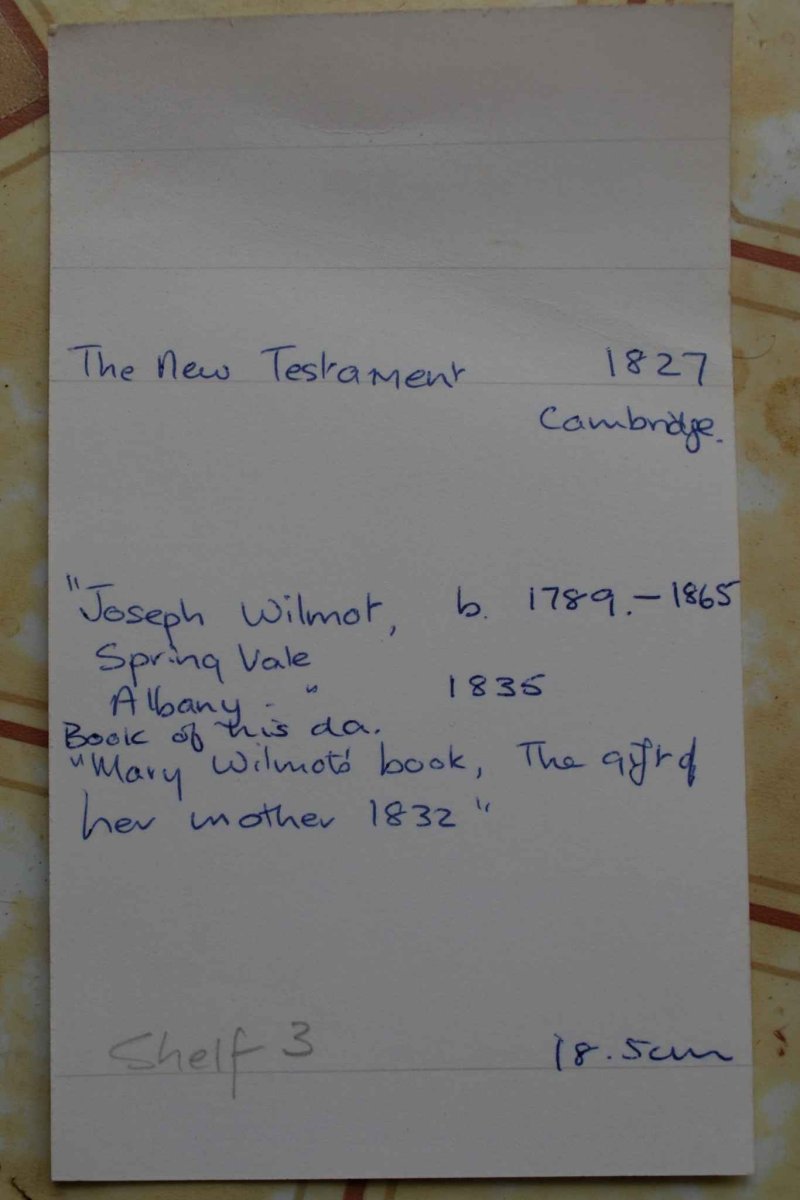 The New Testament 1827
Cambridge.
"Joseph Wilmot, b. 1789.-1865
Spring Vale
Albany . " 1835
Book of his da.
"Mary Wilmot's book, The gift of
her mother 1832"
Shelf 3 18.5cm